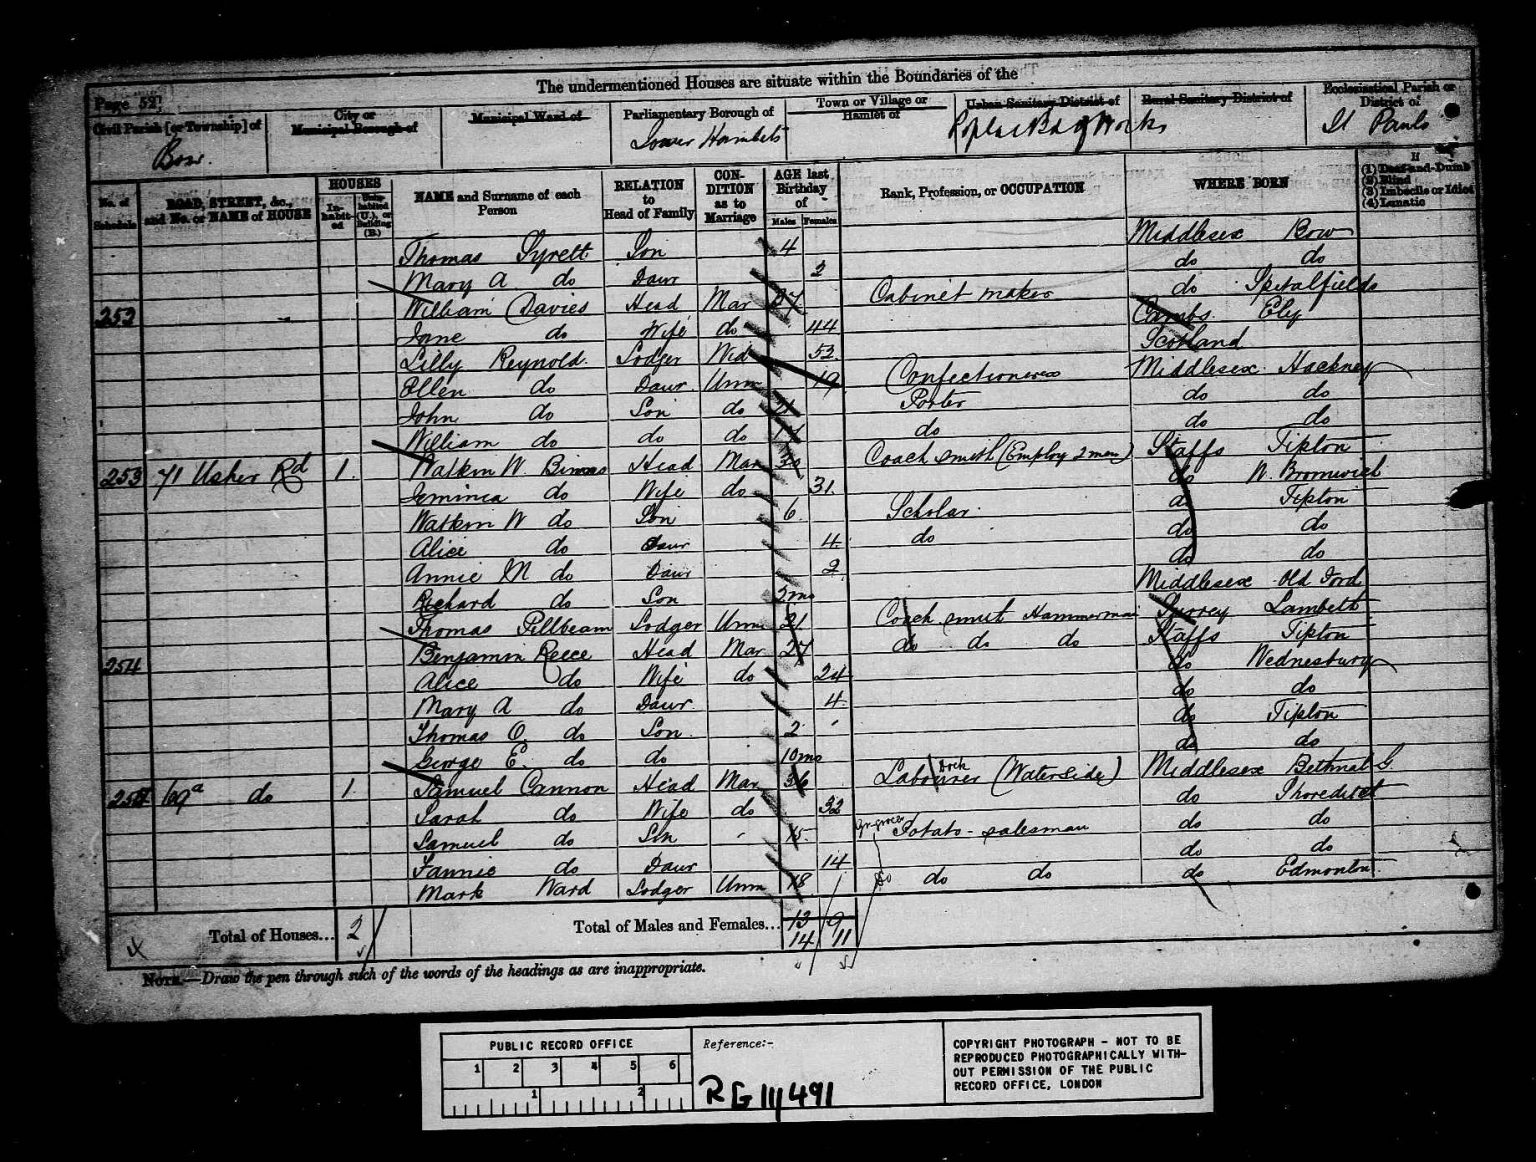 The undermentioned Houses are situate within the Boundaries of the
Page 52
Civil Parish [or Township] of
Bow.
City or
Municipal Borough of
Municipal Ward of
Parliamentary Borough of
Tower Hamlets
Town or Village or
Hamlet of
Urban Sanitary District of
Poplar Bd of Works
Rural Sanitary District of
Ecclesiastical Parish or
District of
St Pauls
No. of Schedule
ROAD, STREET, &c., and No. or NAME of HOUSE
HOUSES
In-habit-ed
Unin-habited (U.), or Building (B.)
NAME and Surname of each Person
RELATION to Head of Family
CON-DITION as to Marriage
AGE last Birthday of
Males Females
Rank, Profession, or OCCUPATION
WHERE BORN
If
(1) Deaf-and-Dumb
(2) Blind
(3) Imbecile or Idiot
(4) Lunatic
Thomas Syrett Son 4 Middlesex Bow
Mary A do Daur 2 do do
253 William Davies Head Mar 37 Cabinet maker do Spitalfields
Jane do Wife do 44 Cambs Ely
Lilly Reynold. Lodger Wid 52 Scotland
Ellen do Daur Unm 19 Confectioner Middlesex Hackney
John do Son do Porter do do
William do do do do do do
253 71 Usher Rd 1 Watkin W Head Mar 30 Coach smith (Employ 2 men) Staffs Tipton
Jemima do Wife do 31 do W. Bromwich
Watkin W do Son 6 Scholar do Tipton
Alice do Daur 4 do do do
Annie M do Daur 2 do do
Richard do Son 2 mo Middlesex Old Ford
Thomas Pillbeam Lodger Unm 21 Coach smith Hammerman Surrey Lambeth
254 Benjamin Reece Head Mar 27 do do do Staffs Tipton
Alice do Wife do 24 do Wednesbury
Mary A do Daur 4 do do
Thomas O. do Son 2 do Tipton
George E. do do 10mo do do
69a do 1 Samuel Cannon Head Mar 36 Dock Labourer (Waterside) Middlesex Bethnal G
Sarah do Wife do 32 do Shoreditch
Samuel do Son 15 Potato-salesman do do
Fannie do Daur 14 do do
Mark Ward Lodger Unm 18 do do do do Edmonton
Total of Houses... 2
Total of Males and Females... 13 9
14 11
NOTE.—Draw the pen through such of the words of the headings as are inappropriate.
PUBLIC RECORD OFFICE
1 2 3 4 5 6
1 2
Reference:-
RG 11/491
COPYRIGHT PHOTOGRAPH - NOT TO BE
REPRODUCED PHOTOGRAPHICALLY WITH-
OUT PERMISSION OF THE PUBLIC
RECORD OFFICE, LONDON